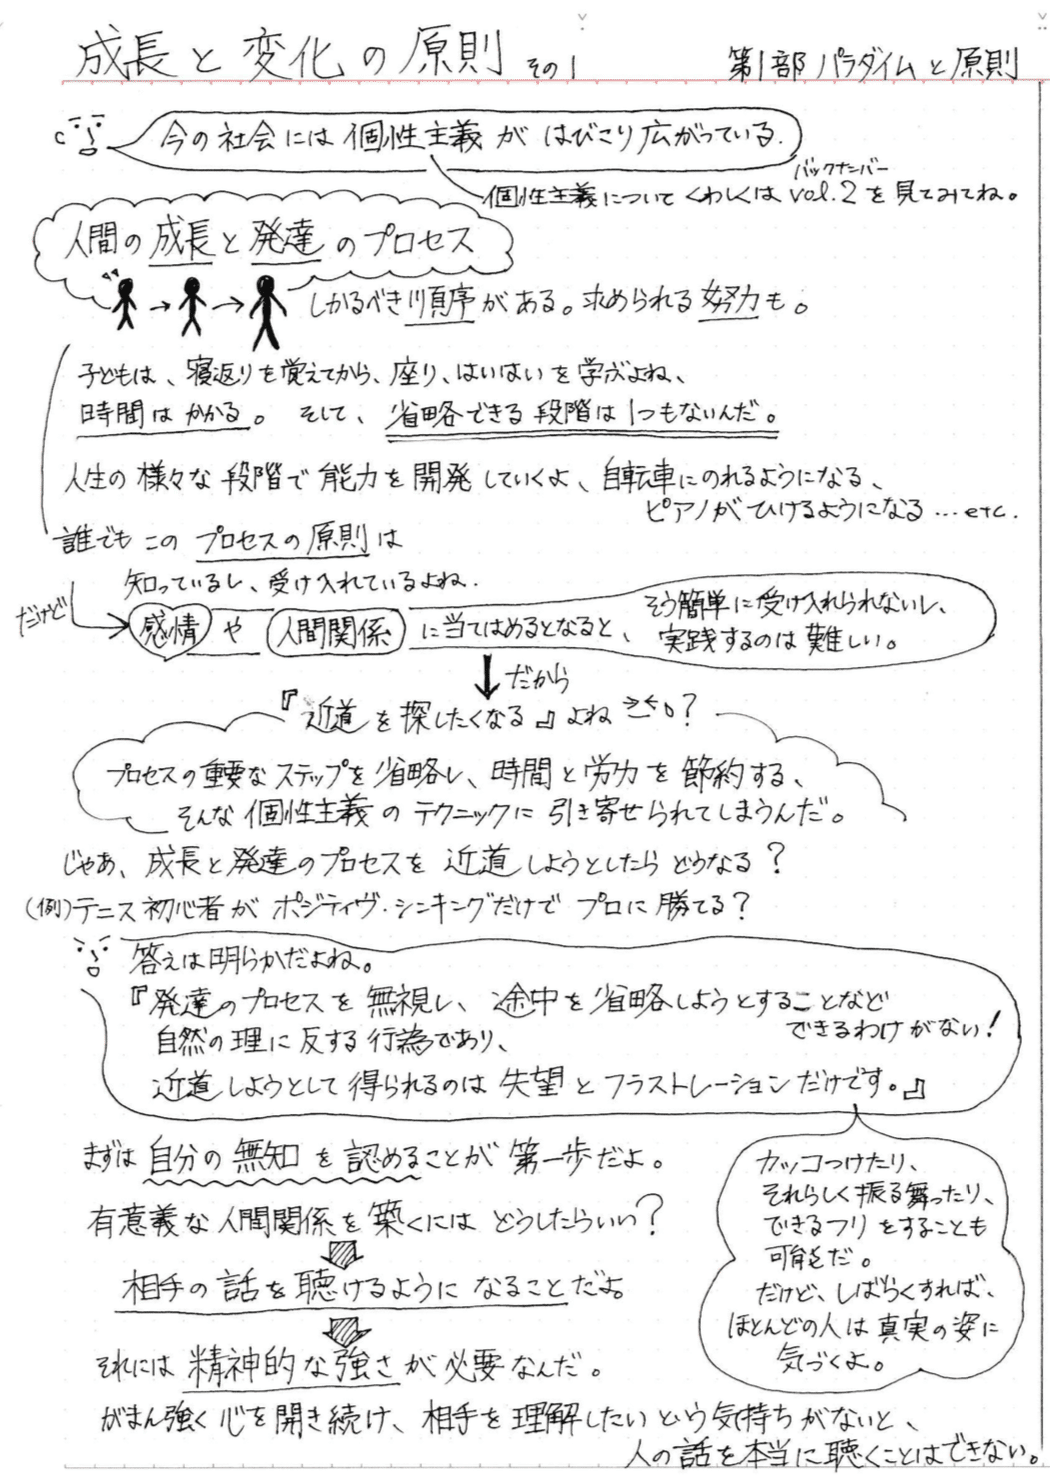 成長と変化の原則 その1
第1部 パラダイムと原則
今の社会には個性主義がはびこり広がっている.
バックナンバー
個性主義についてくわしくはvol.2を見てみてね。
人間の成長と発達のプロセス
しかるべき順序がある。求められる努力も。
子どもは、寝返りを覚えてから、座り、はいはいを学ぶよね、
時間はかかる。そして、省略できる段階は1つもないんだ。
人生の様々な段階で能力を開発していくよ、自転車にのれるようになる、
ピアノがひけるようになる…etc.
誰でもこのプロセスの原則は
知っているし、受け入れているよね.
だけど
感情や人間関係に当てはめるとなると、
そう簡単に受け入れられないし、
実践するのは難しい。
だから
『近道を探したくなる』よね?
プロセスの重要なステップを省略し、時間と労力を節約する、
そんな個性主義のテクニックに引き寄せられてしまうんだ。
じゃあ、成長と発達のプロセスを近道しようとしたらどうなる?
(例)テニス初心者がポジティヴ・シンキングだけでプロに勝てる?
答えは明らかだよね。
『発達のプロセスを無視し、途中を省略しようとすることなど
できるわけがない!
自然の理に反する行為であり、
近道しようとして得られるのは失望とフラストレーションだけです。』
まずは自分の無知を認めることが第一歩だよ。
有意義な人間関係を築くにはどうしたらいい?
相手の話を聴けるようになることだよ。
それには精神的な強さが必要なんだ。
カッコつけたり、
それらしく振る舞ったり、
できるフリをすることも
可能だ。
だけど、しばらくすれば、
ほとんどの人は真実の姿に
気づくよ。
がまん強く心を開き続け、相手を理解したいという気持ちがないと、
人の話を本当に聴くことはできない。